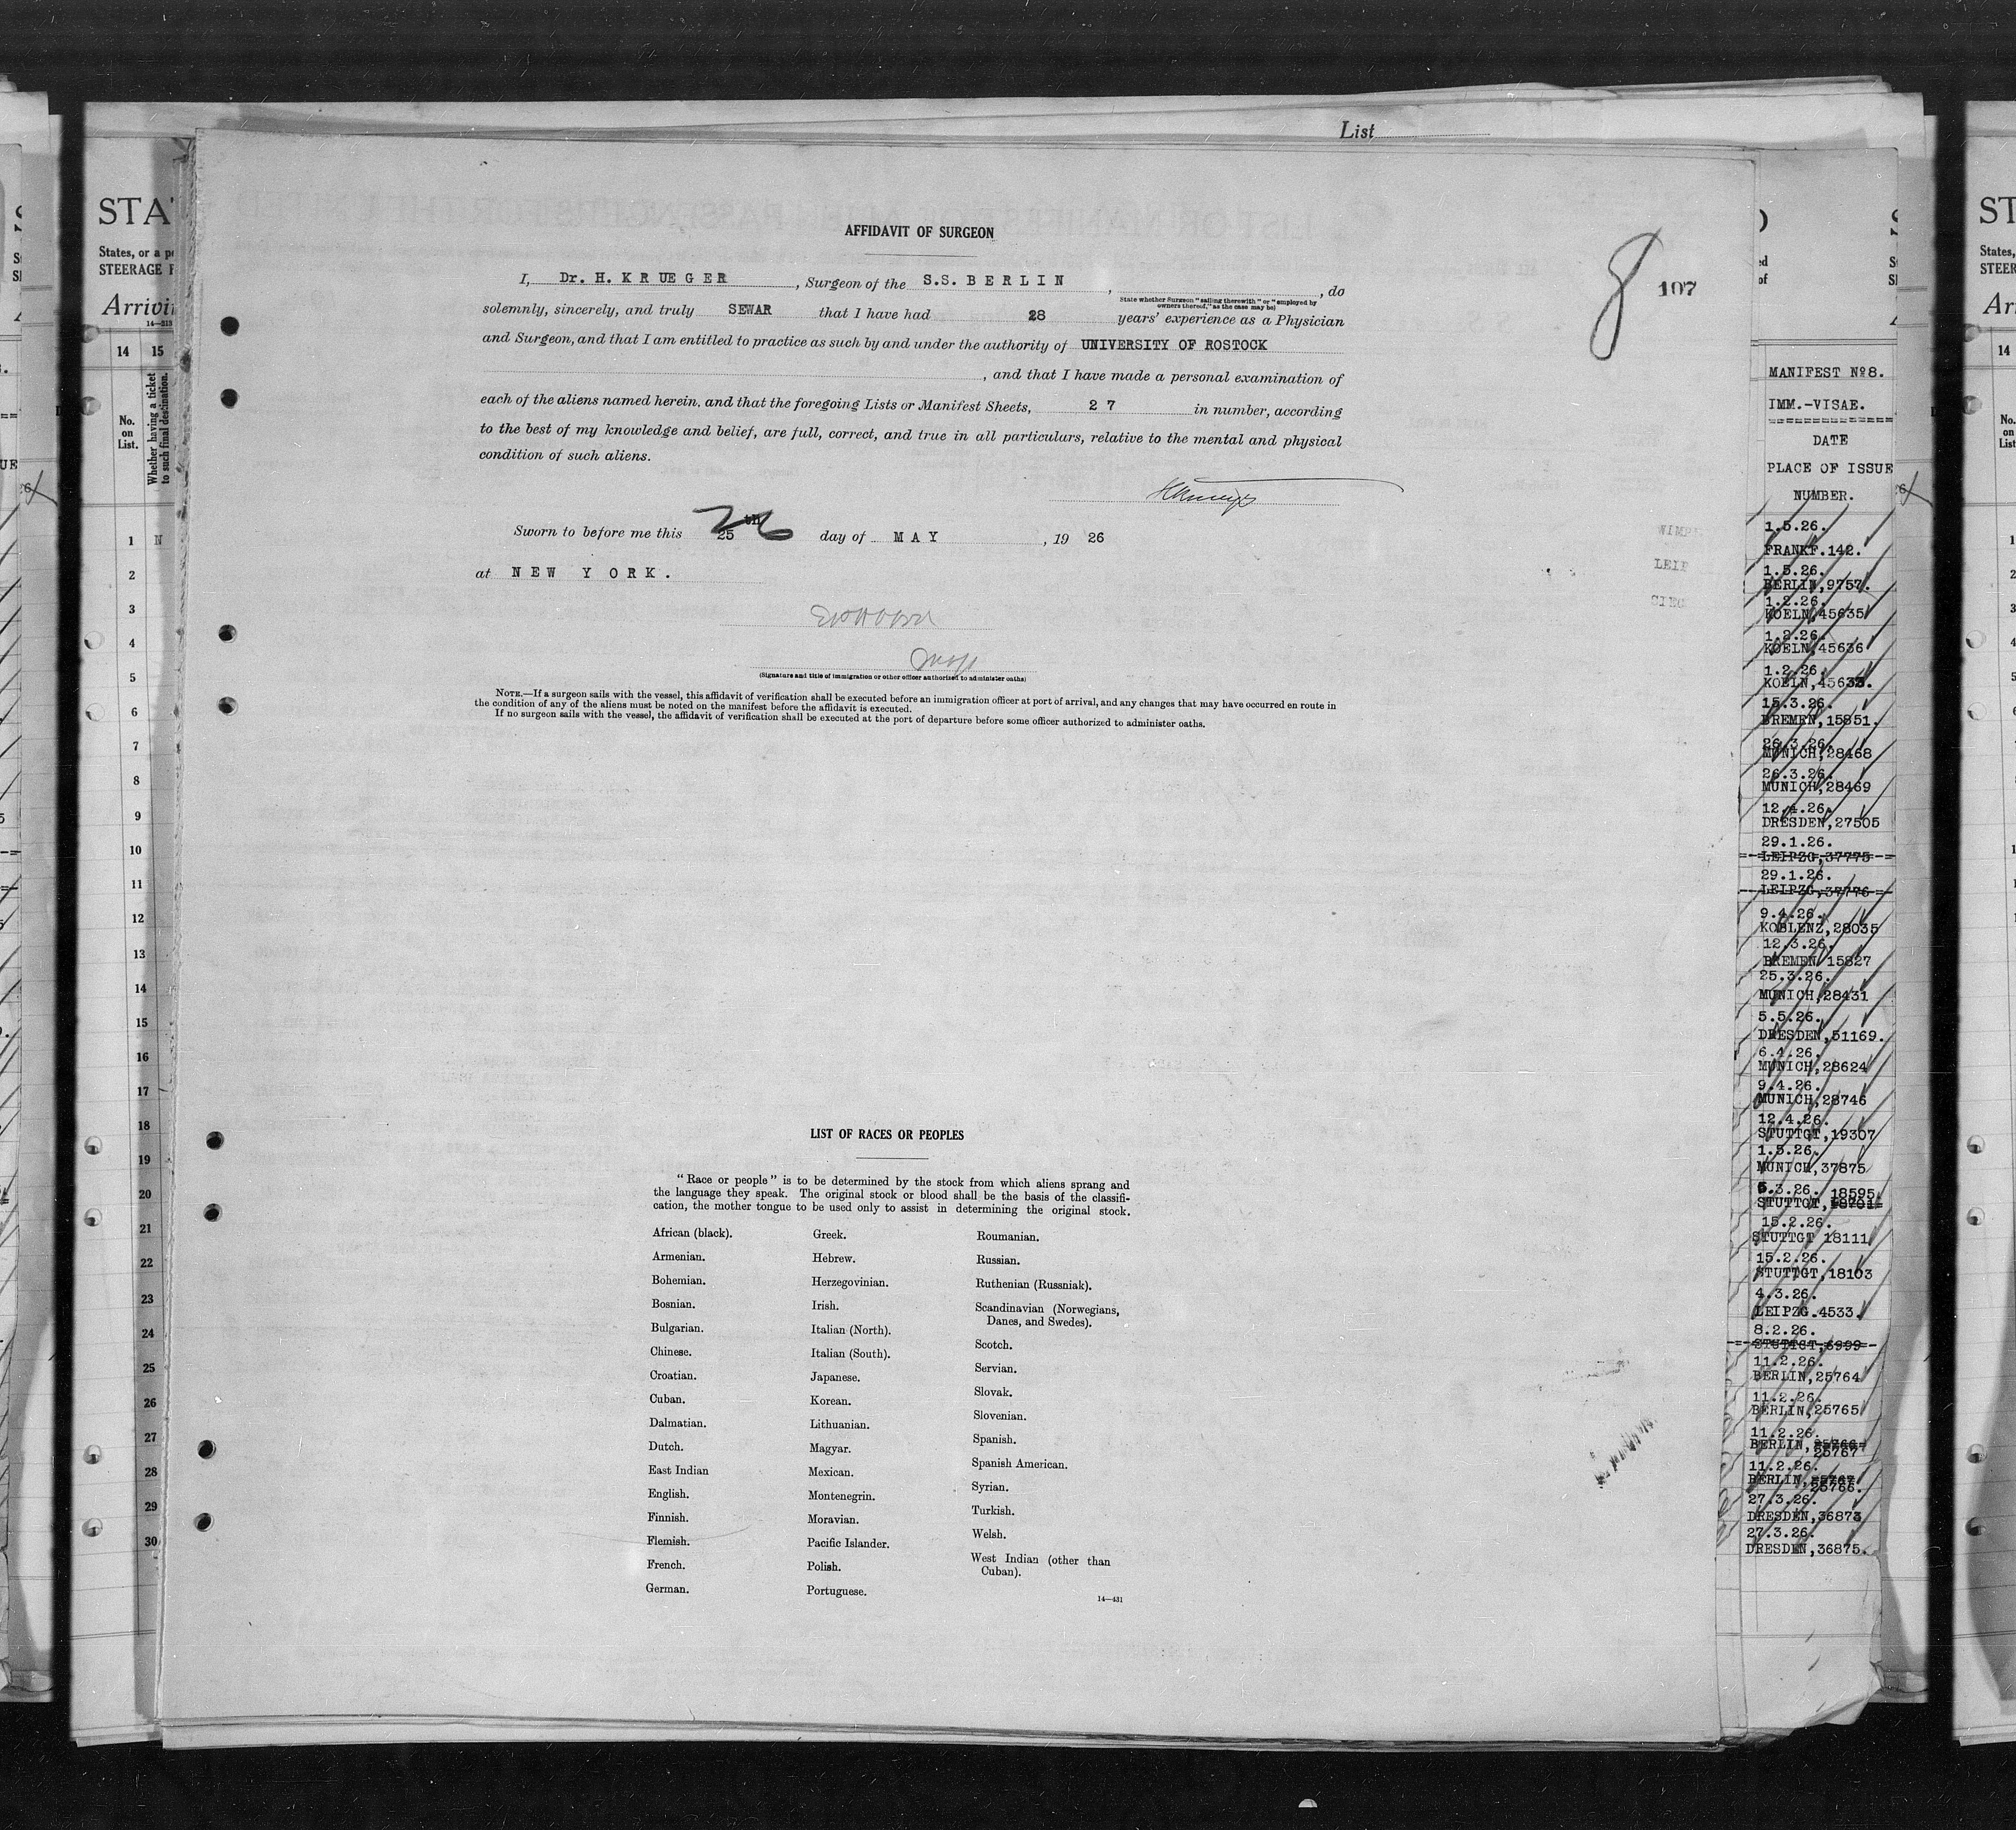 List
STA
States, or a p
STEERAGE P
Arrivi
14—213
14 15
No. on List.
Whether having a ticket to such final destination.
1 N
2
3
4
5
6
7
8
9
10
11
12
13
14
15
16
17
18
19
20
21
22
23
24
25
26
27
28
29
30
8
107
AFFIDAVIT OF SURGEON
I, Dr. H. KRUEGER, Surgeon of the S.S. BERLIN, , do
State whether Surgeon "sailing therewith" or "employed by owners thereof," as the case may be
solemnly, sincerely, and truly SEWAR that I have had 28 years' experience as a Physician
and Surgeon, and that I am entitled to practice as such by and under the authority of UNIVERSITY OF ROSTOCK
, and that I have made a personal examination of
each of the aliens named herein, and that the foregoing Lists or Manifest Sheets, 27 in number, according
to the best of my knowledge and belief, are full, correct, and true in all particulars, relative to the mental and physical
condition of such aliens.
Sworn to before me this 25th 26 day of MAY, 19 26
at NEW YORK.
(Signature and title of immigration or other officer authorized to administer oaths)
NOTE.—If a surgeon sails with the vessel, this affidavit of verification shall be executed before an immigration officer at port of arrival, and any changes that may have occurred en route in
the condition of any of the aliens must be noted on the manifest before the affidavit is executed.
If no surgeon sails with the vessel, the affidavit of verification shall be executed at the port of departure before some officer authorized to administer oaths.
LIST OF RACES OR PEOPLES
"Race or people" is to be determined by the stock from which aliens sprang and
the language they speak. The original stock or blood shall be the basis of the classifi-
cation, the mother tongue to be used only to assist in determining the original stock.
African (black).
Armenian.
Bohemian.
Bosnian.
Bulgarian.
Chinese.
Croatian.
Cuban.
Dalmatian.
Dutch.
East Indian
English.
Finnish.
Flemish.
French.
German.
Greek.
Hebrew.
Herzegovinian.
Irish.
Italian (North).
Italian (South).
Japanese.
Korean.
Lithuanian.
Magyar.
Mexican.
Montenegrin.
Moravian.
Pacific Islander.
Polish.
Portuguese.
Roumanian.
Russian.
Ruthenian (Russniak).
Scandinavian (Norwegians,
Danes, and Swedes).
Scotch.
Servian.
Slovak.
Slovenian.
Spanish.
Spanish American.
Syrian.
Turkish.
Welsh.
West Indian (other than
Cuban).
14—431
MANIFEST Nº8.
IMM.-VISAE.
DATE
PLACE OF ISSUE
NUMBER.
1.5.26.
FRANKF.142.
1.5.26.
BERLIN,9757.
1.2.26.
KOELN,45635
1.2.26.
KOELN,45636
1.2.26.
KOELN,45633.
15.3.26.
BREMEN,15851.
26.3.26.
MUNICH,28468
26.3.26.
MUNICH,28469
12.4.26.
DRESDEN,27505
29.1.26.
LEIPZG,37775
29.1.26.
LEIPZG,37776
9.4.26.
KOBLENZ,28035
12.3.26.
BREMEN,15827
25.3.26.
MUNICH,28431
5.5.26.
DRESDEN,51169.
6.4.26.
MUNICH,28624
9.4.26.
MUNICH,28746
12.4.26.
STUTTGT,19307
1.5.26.
MUNICH,37875
6.3.26. 18595
STUTTGT,18701
15.2.26.
STUTTGT 18111
15.2.26.
STUTTGT,18103
4.3.26.
LEIPZG.4533.
8.2.26.
STUTTGT,6999
11.2.26.
BERLIN,25764
11.2.26.
BERLIN,25765
11.2.26.
BERLIN,25766
25767
11.2.26.
BERLIN,25767
25766.
27.3.26.
DRESDEN,36873
27.3.26.
DRESDEN,36875.